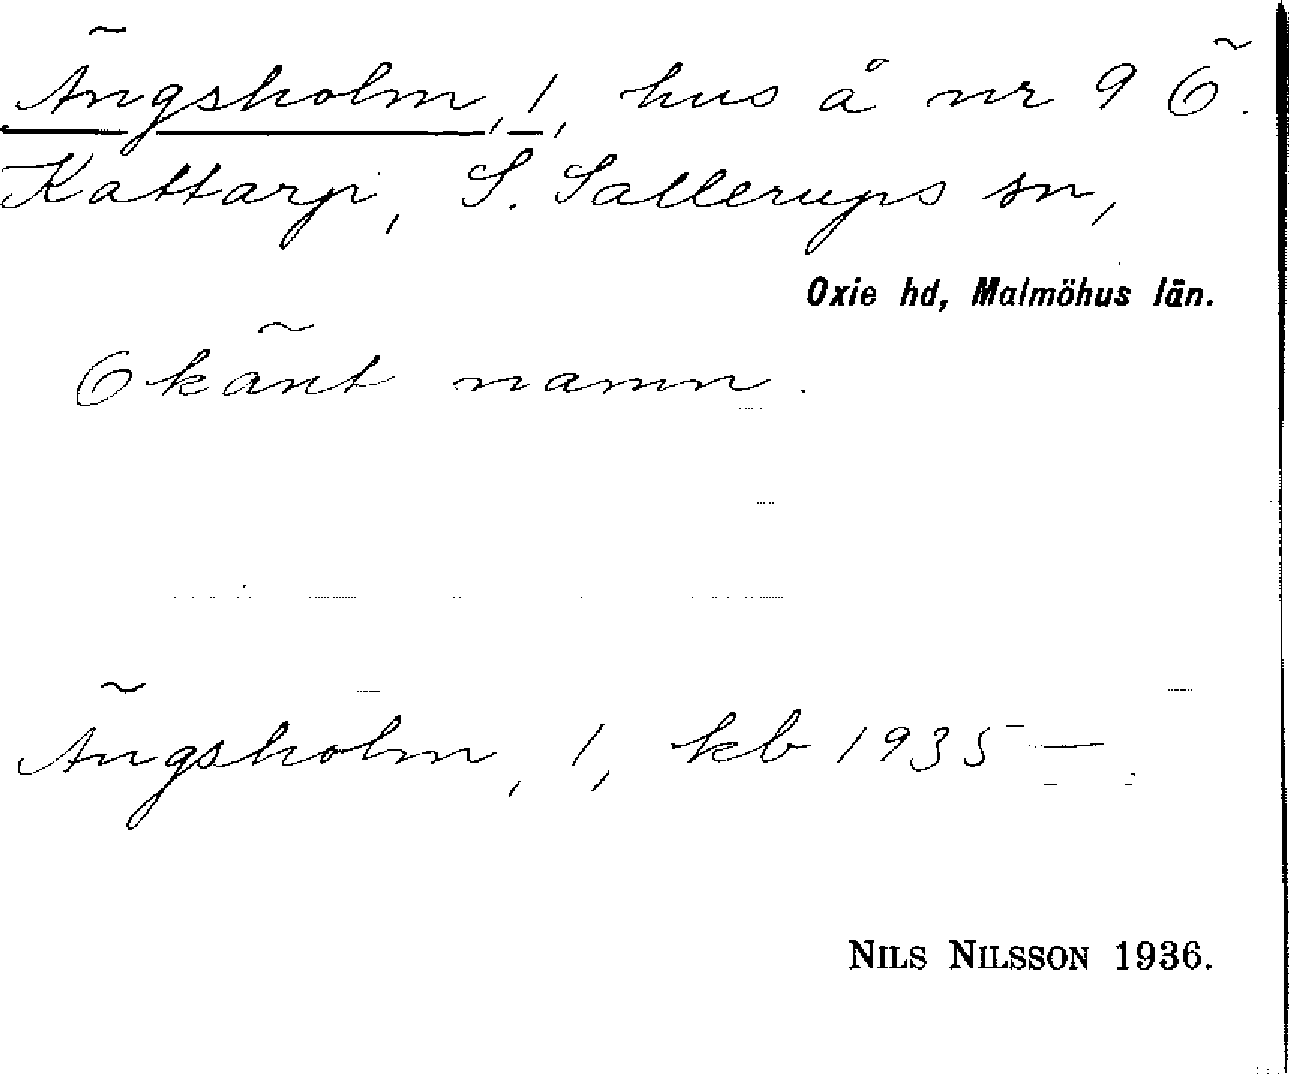 Ängsholm, 1, hus å nr 9 Ö.
Kattarp, S. Sallerups sn,
Oxie hd, Malmöhus län.
Okänt namn.
Ängsholm, 1, kb 1935 —.
NILS NILSSON 1936.